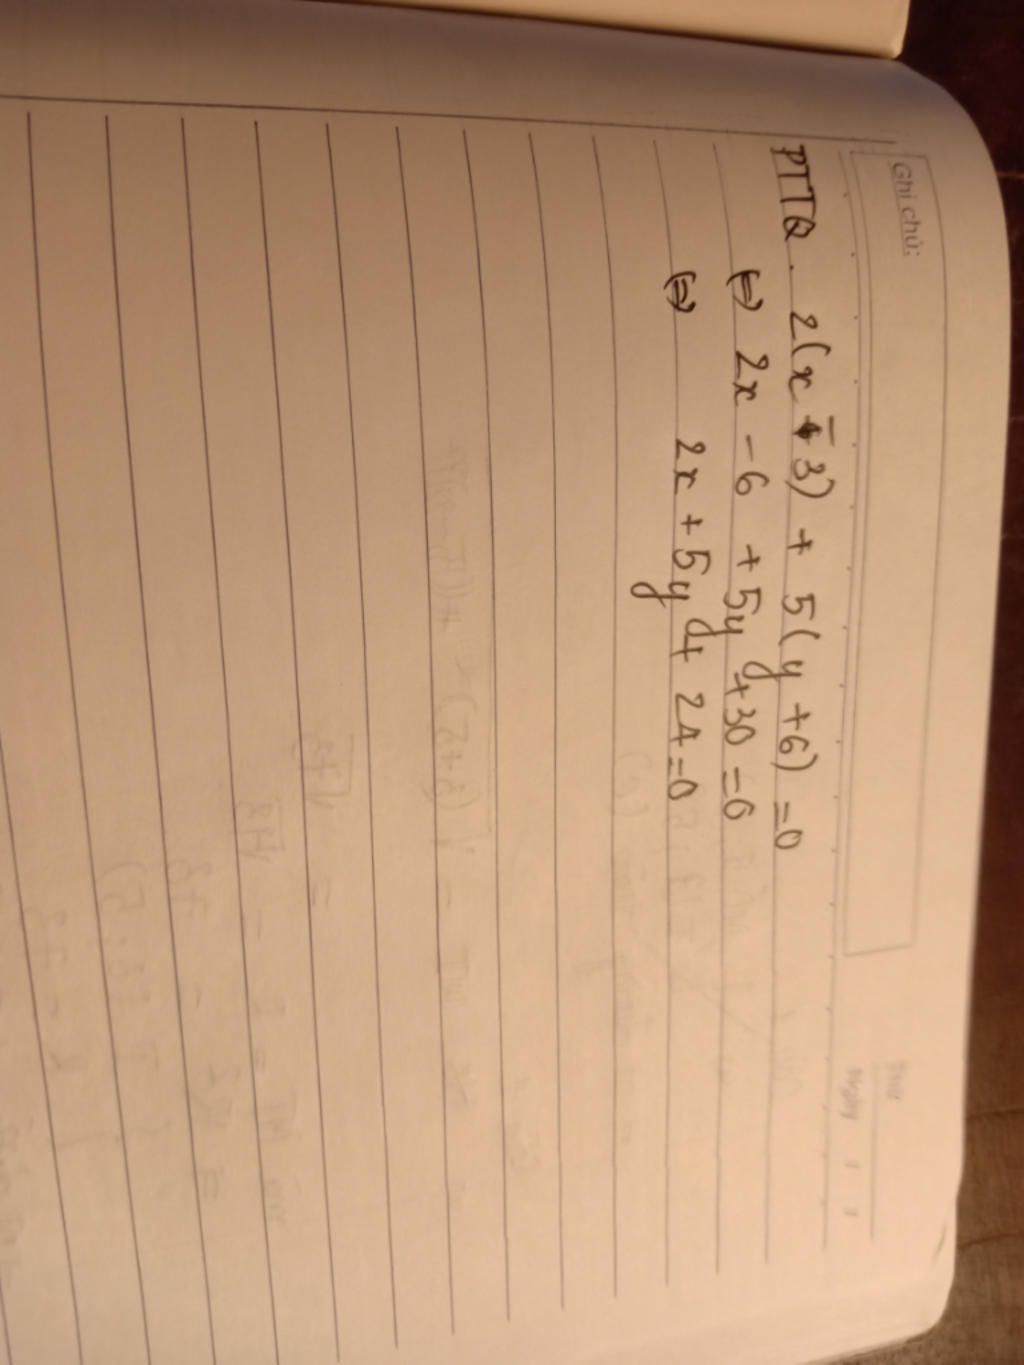 Ghi chú:
Thứ
Ngày / /
PTTQ. 2(x - 3) + 5(y + 6) = 0
(=) 2x - 6 + 5y + 30 = 0
(=) 2x + 5y + 24 = 0